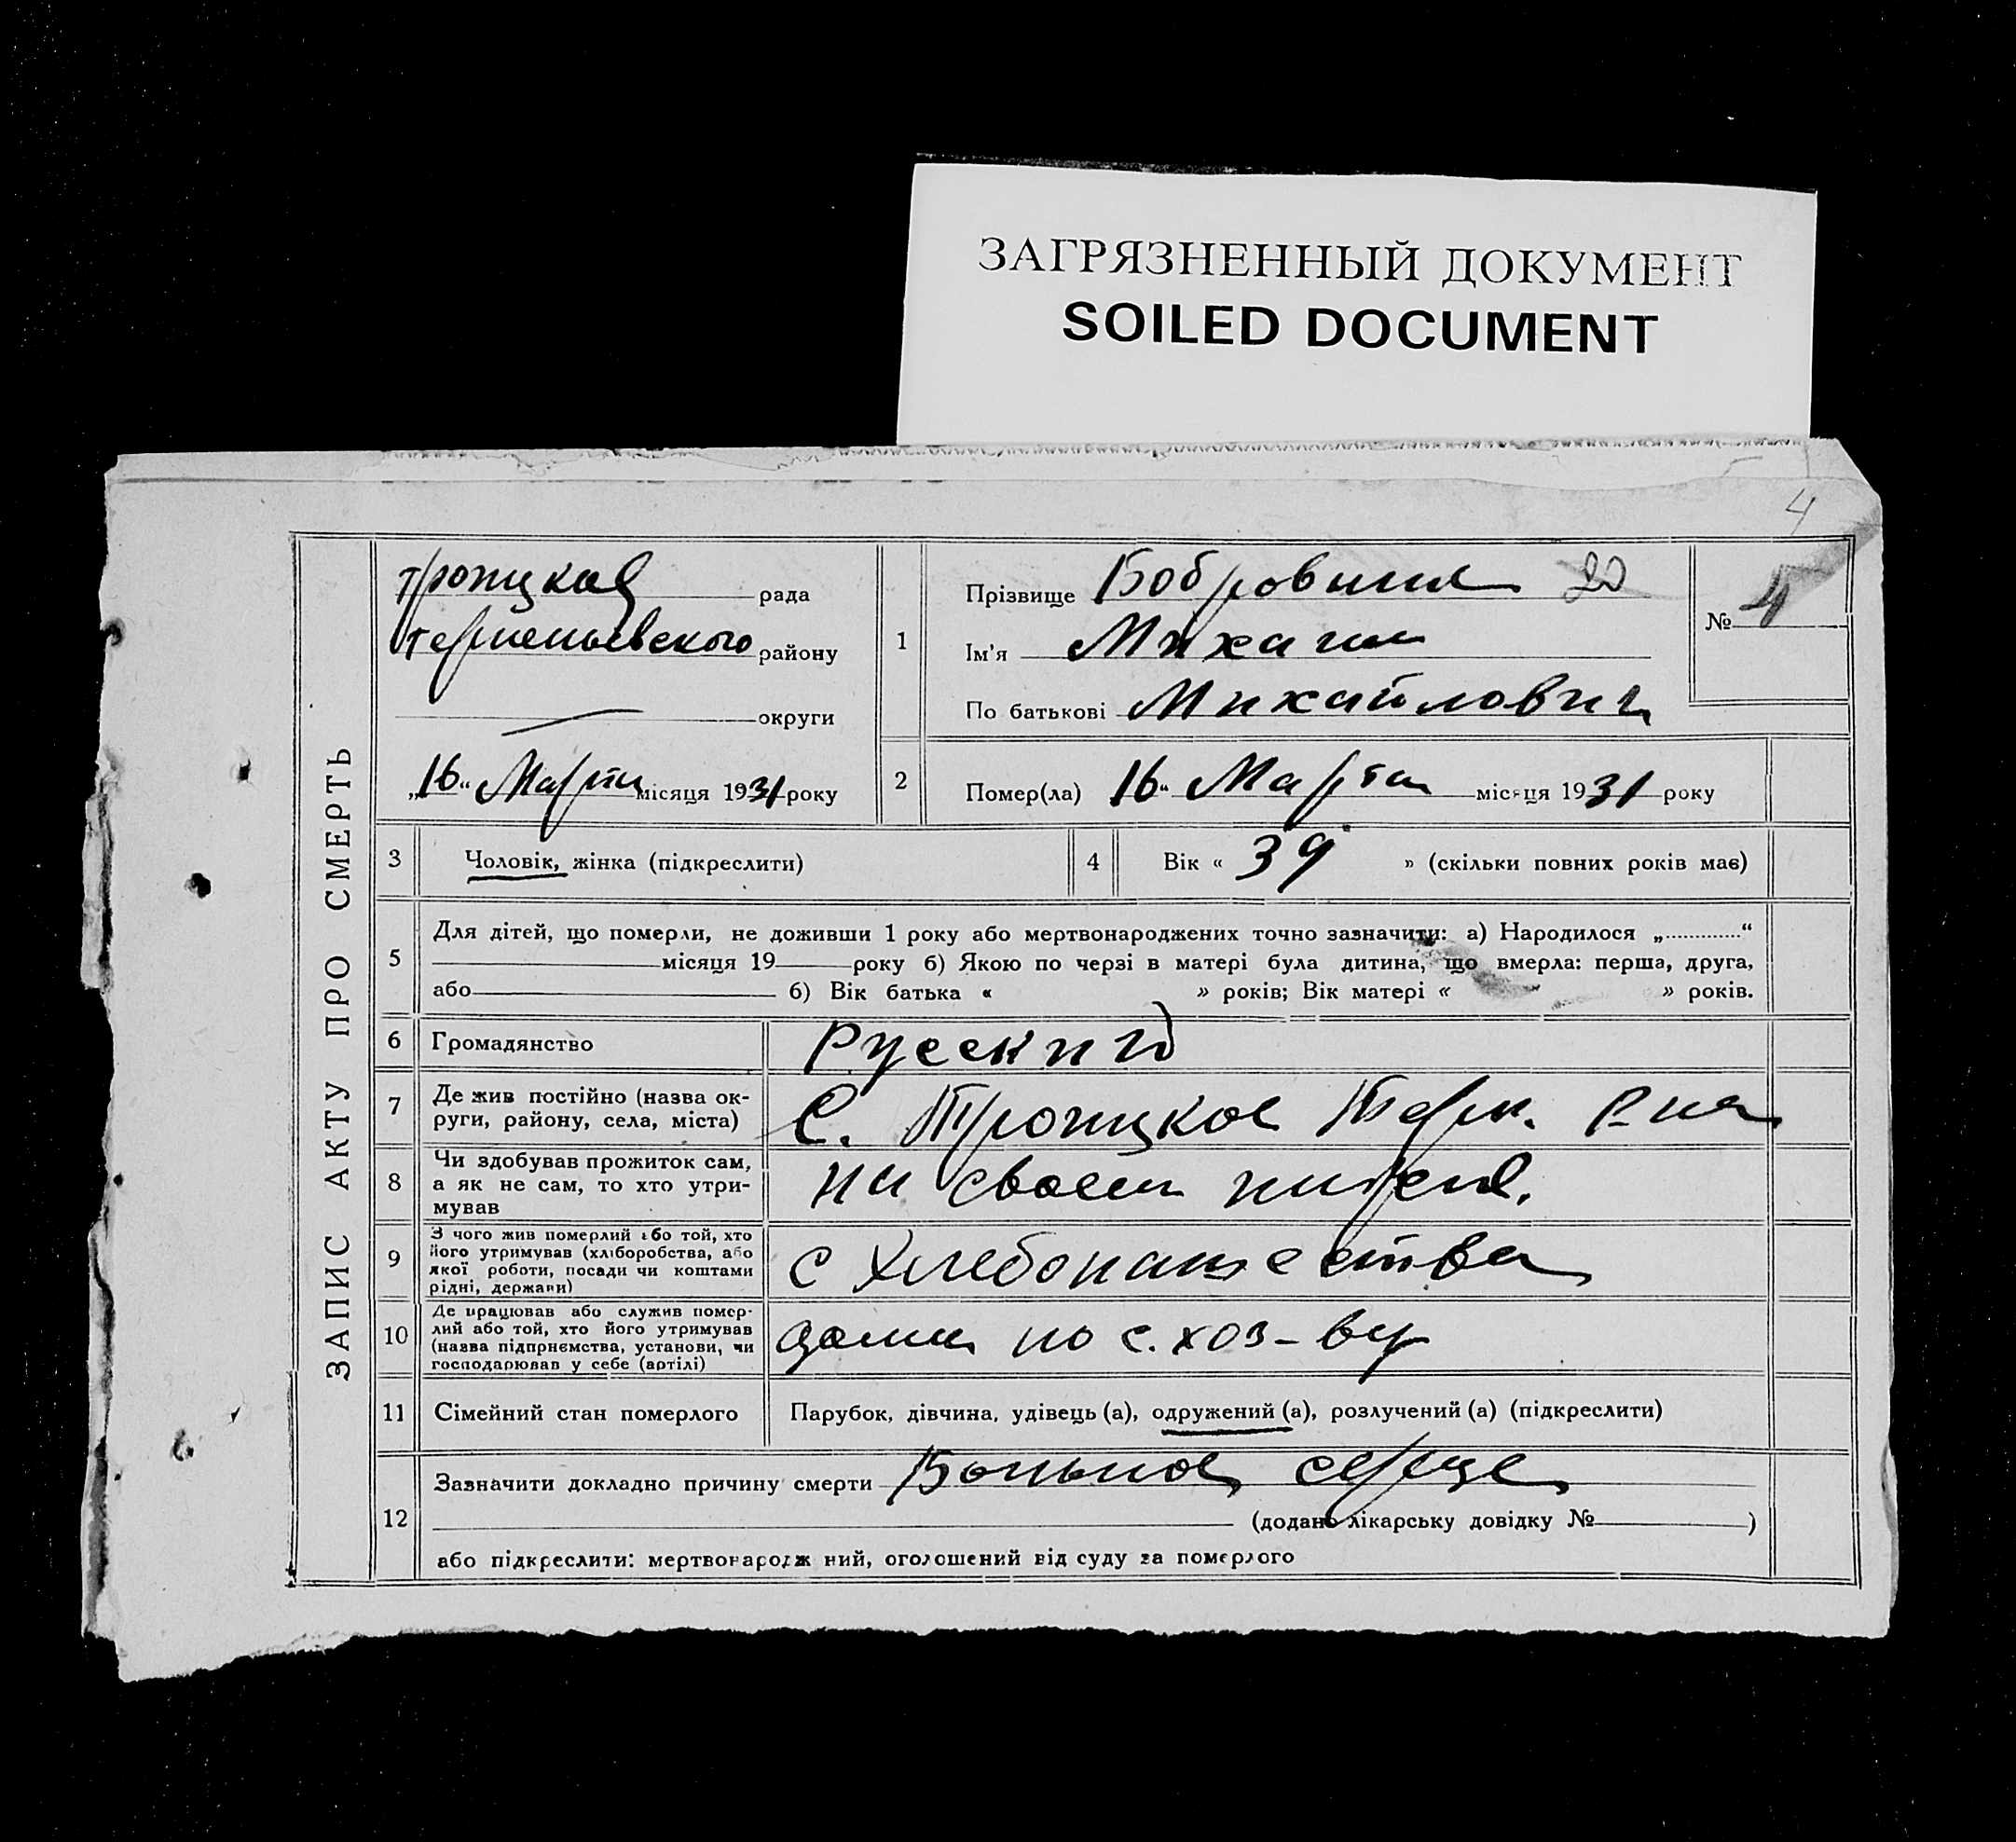 ЗАГРЯЗНЕННЫЙ ДОКУМЕНТ
SOILED DOCUMENT
4
ЗАПИС АКТУ ПРО СМЕРТЬ
Троицкая рада
района
округи
„16“ Марта місяця 1931 року
1
Прізвище Бобровник 20
Ім'я Михаил
По батькові Михайлович
№ 4
2
Помер(ла) 16“ Марта місяця 1931 року
3 Чоловік, жінка (підкреслити)
4 Вік « 39 » (скільки повних років має)
5 Для дітей, що померли, не доживши 1 року або мертвонароджених точно зазначити: а) Народилося „.............“
місяця 19 року б) Якою по черзі в матері була дитина, що вмерла: перша, друга,
або б) Вік батька « » років; Вік матері « » років.
6 Громадянство Русский
7 Де жив постійно (назва ок-
руги, району, села, міста) С. Троицкое Терп. р-на
8 Чи здобував прожиток сам,
а як не сам, то хто утри-
мував на своем
9 З чого жив померлий або той, хто
його утримував (хліборобства, або
якої роботи, посади чи коштами
рідні, держави) с хлебопашества
10 Де працював або служив помер-
лий або той, хто його утримував
(назва підприємства, установи, чи
господарював у себе (артілі) дома по с. хоз-ву
11 Сімейний стан померлого Парубок, дівчина, удівець (а), одружений (а), розлучений (а) (підкреслити)
12 Зазначити докладно причину смерти Больное сердце
(додано лікарську довідку № )
або підкреслити: мертвонародж ний, оголошений від суду за померлого